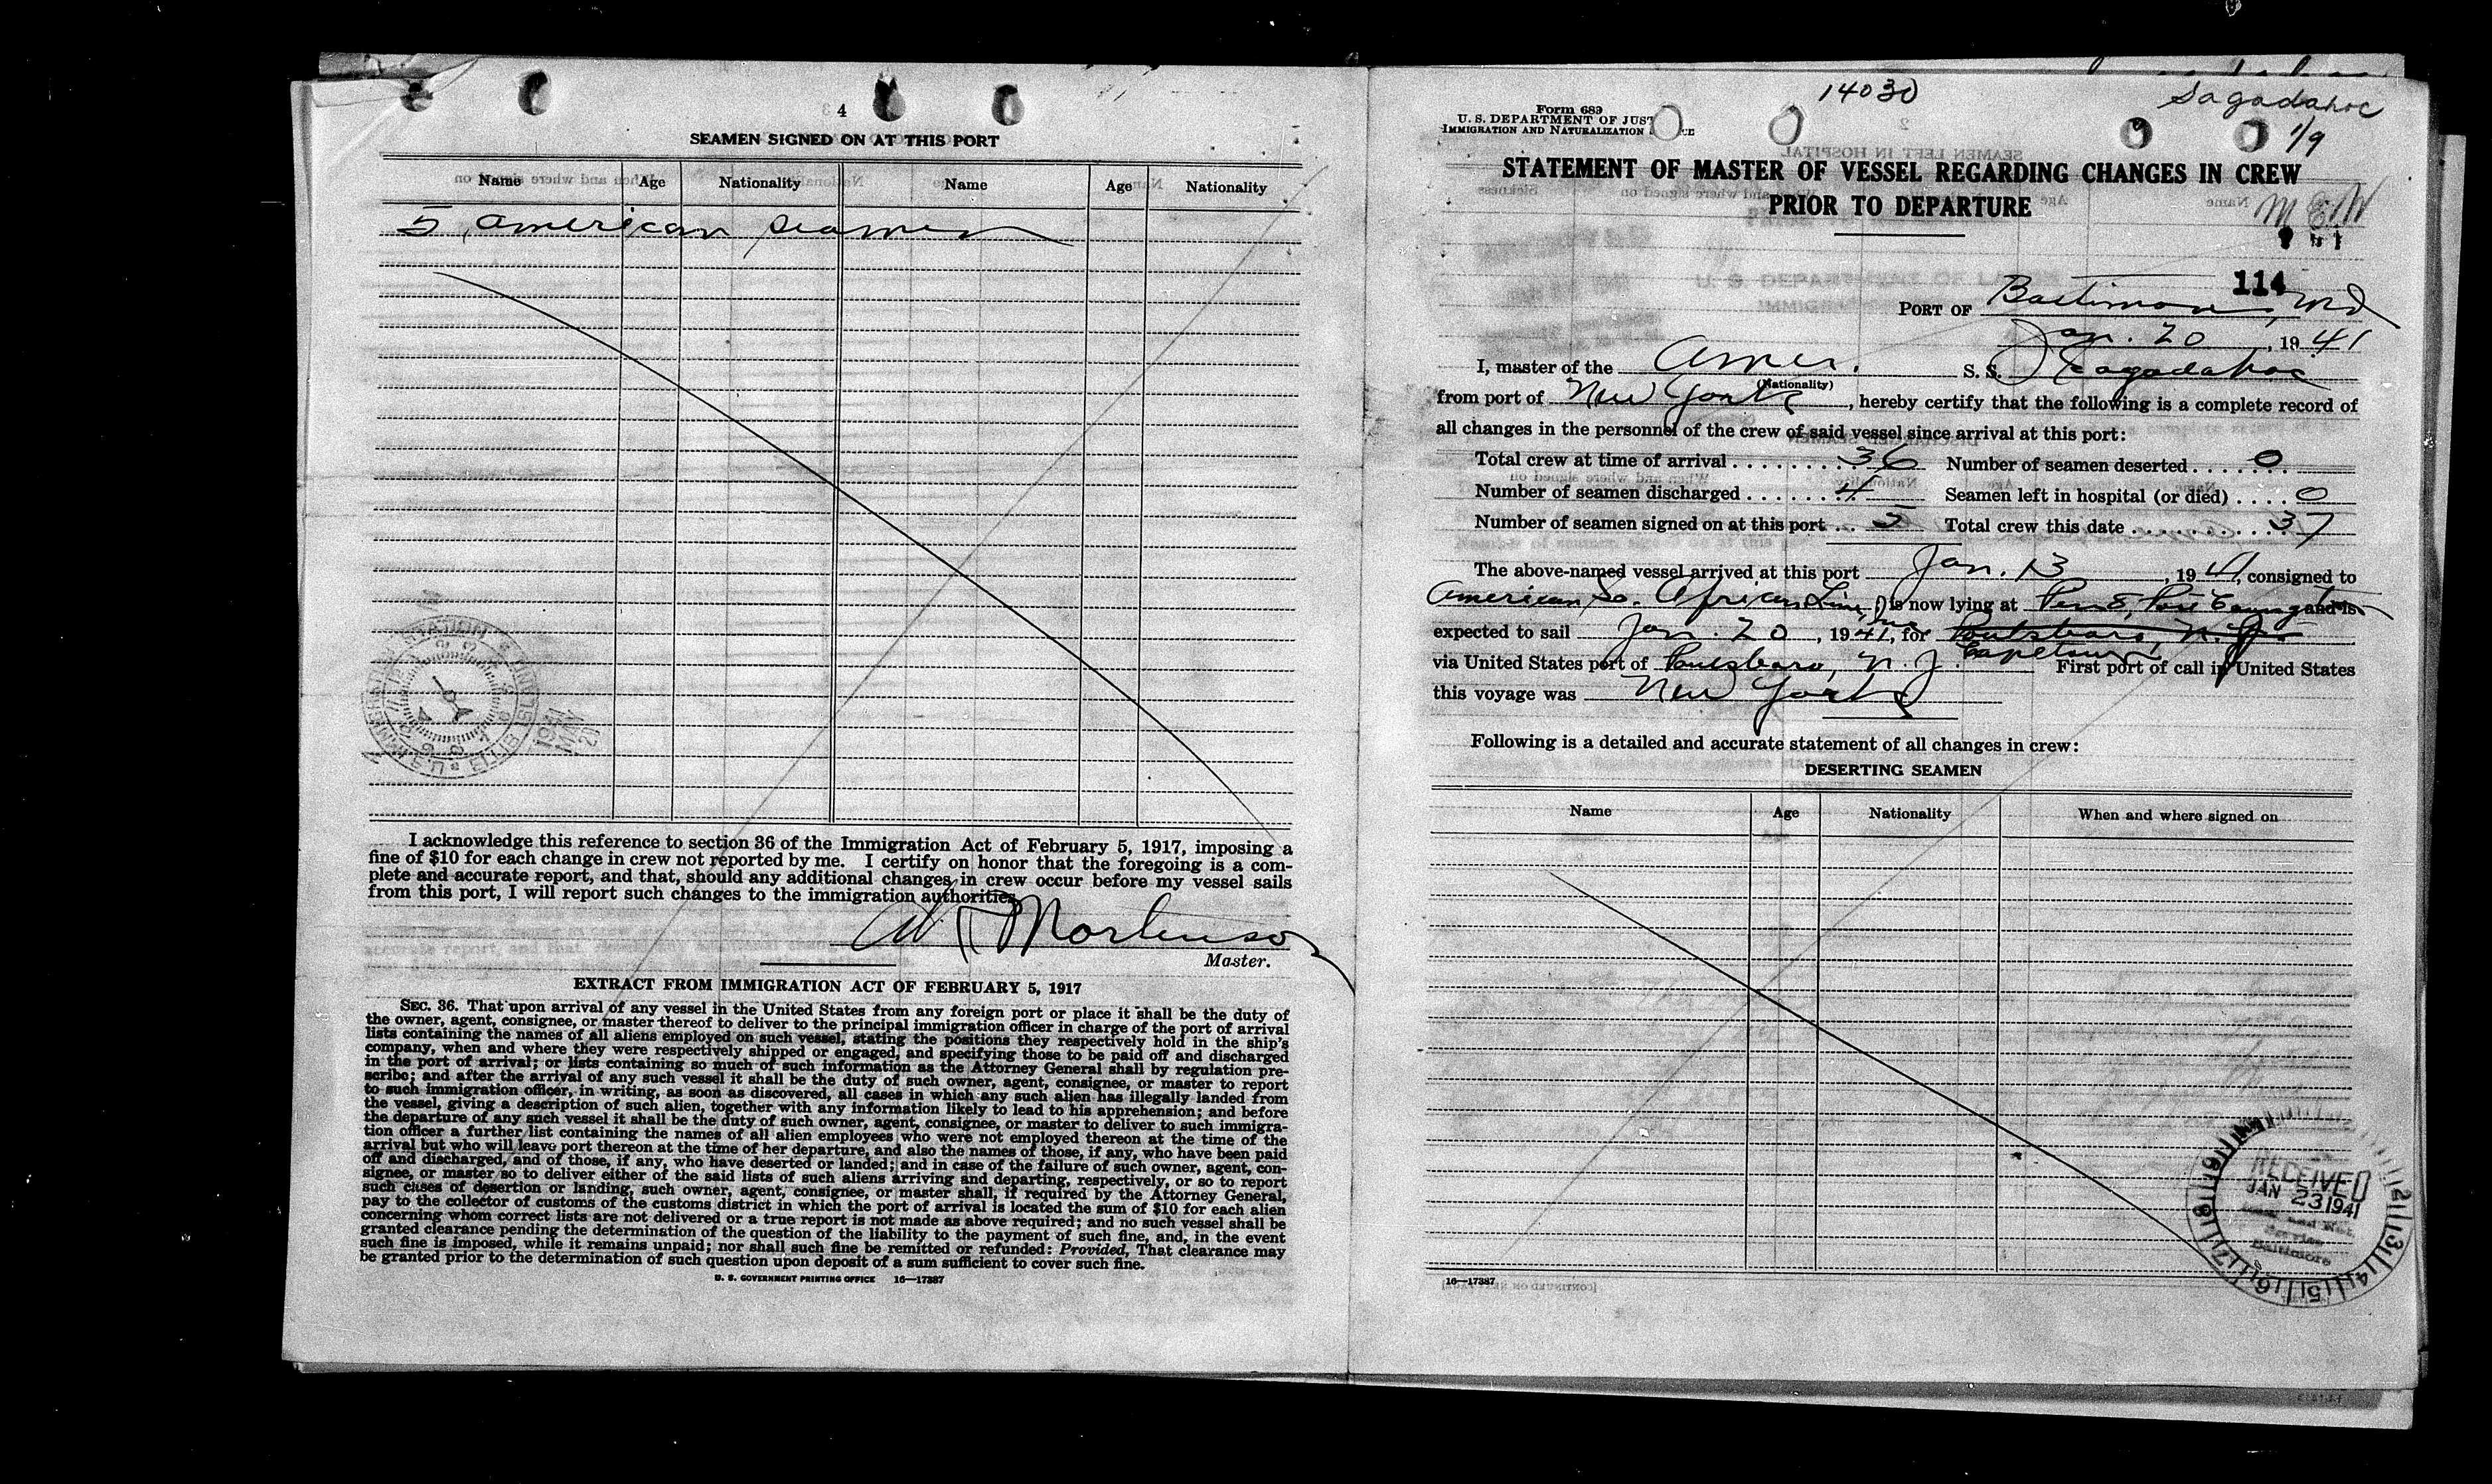 4
SEAMEN SIGNED ON AT THIS PORT
Name Age Nationality Name Age Nationality
5 American seamen
I acknowledge this reference to section 36 of the Immigration Act of February 5, 1917, imposing a
fine of $10 for each change in crew not reported by me. I certify on honor that the foregoing is a com-
plete and accurate report, and that, should any additional changes in crew occur before my vessel sails
from this port, I will report such changes to the immigration authorities.
Mortenson
Master.
EXTRACT FROM IMMIGRATION ACT OF FEBRUARY 5, 1917
SEC. 36. That upon arrival of any vessel in the United States from any foreign port or place it shall be the duty of
the owner, agent, consignee, or master thereof to deliver to the principal immigration officer in charge of the port of arrival
lists containing the names of all aliens employed on such vessel, stating the positions they respectively hold in the ship's
company, when and where they were respectively shipped or engaged, and specifying those to be paid off and discharged
in the port of arrival; or lists containing so much of such information as the Attorney General shall by regulation pre-
scribe; and after the arrival of any such vessel it shall be the duty of such owner, agent, consignee, or master to report
to such immigration officer, in writing, as soon as discovered, all cases in which any such alien has illegally landed from
the vessel, giving a description of such alien, together with any information likely to lead to his apprehension; and before
the departure of any such vessel it shall be the duty of such owner, agent, consignee, or master to deliver to such immigra-
tion officer a further list containing the names of all alien employees who were not employed thereon at the time of the
arrival but who will leave port thereon at the time of her departure, and also the names of those, if any, who have been paid
off and discharged, and of those, if any, who have deserted or landed; and in case of the failure of such owner, agent, con-
signee, or master so to deliver either of the said lists of such aliens arriving and departing, respectively, or so to report
such cases of desertion or landing, such owner, agent, consignee, or master shall, if required by the Attorney General,
pay to the collector of customs of the customs district in which the port of arrival is located the sum of $10 for each alien
concerning whom correct lists are not delivered or a true report is not made as above required; and no such vessel shall be
granted clearance pending the determination of the question of the liability to the payment of such fine, and, in the event
such fine is imposed, while it remains unpaid; nor shall such fine be remitted or refunded: Provided, That clearance may
be granted prior to the determination of such question upon deposit of a sum sufficient to cover such fine.
U. S. GOVERNMENT PRINTING OFFICE 16—17387
1941 MAY 21
ELLIS ISLAND
14030
Sagadahoc
1/9
Form 689
U. S. DEPARTMENT OF JUST
IMMIGRATION AND NATURALIZATION CE
STATEMENT OF MASTER OF VESSEL REGARDING CHANGES IN CREW
PRIOR TO DEPARTURE
M E W
114
PORT OF Baltimore, Md
Jan. 20, 1941
I, master of the Amer. S. S. Sagadahoc
(Nationality)
from port of New York, hereby certify that the following is a complete record of
all changes in the personnel of the crew of said vessel since arrival at this port:
Total crew at time of arrival ........ 36 Number of seamen deserted ...... 0
Number of seamen discharged ...... 4 Seamen left in hospital (or died) .... 0
Number of seamen signed on at this port ... 5 Total crew this date ........... 37
The above-named vessel arrived at this port Jan. 13, 1941, consigned to
American So. African Line, is now lying at and is
expected to sail Jan. 20, 1941, for Paulsboro, N. J.
Capetown
via United States port of Paulsboro, N. J. First port of call in United States
this voyage was New York
Following is a detailed and accurate statement of all changes in crew:
DESERTING SEAMEN
Name Age Nationality When and where signed on
RECEIVED
JAN 23 1941
Baltimore
16—17387